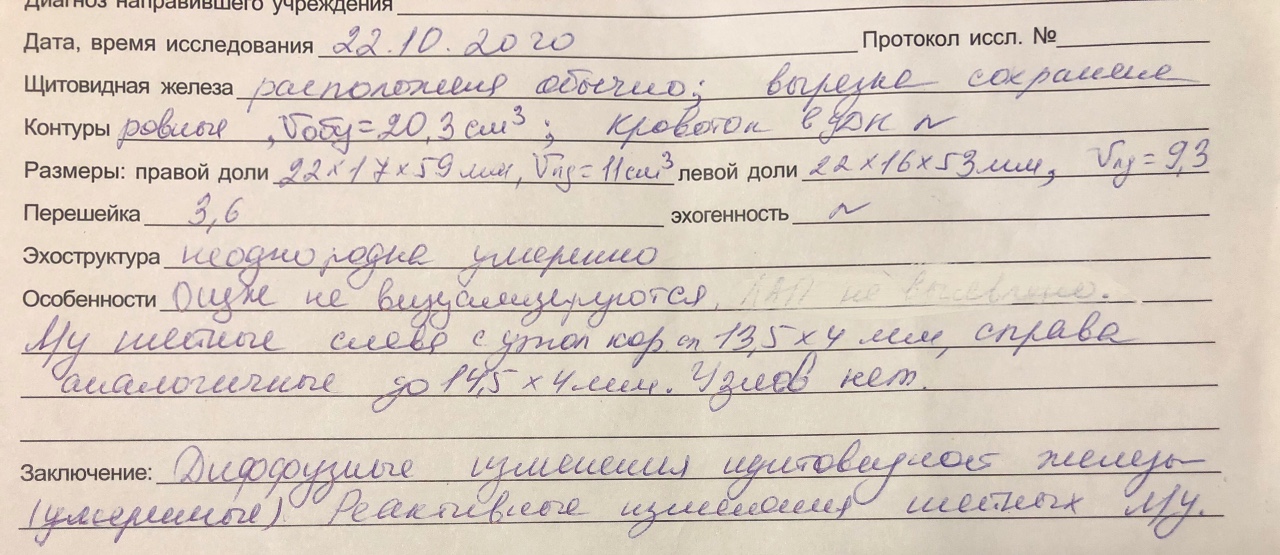 Диагноз направившего учреждения
Дата, время исследования 22.10.2020 Протокол иссл. №
Щитовидная железа расположения обычно; вырезка сохранена
Контуры ровные, Vобщ=20,3 см³; кровоток в ЦДК ~
Размеры: правой доли 22×17×59 мм, Vпд=11 см³ левой доли 22×16×53 мм, Vлд=9,3
Перешейка 3,6 эхогенность ~
Эхоструктура неоднородна умеренно
Особенности не визуализируются, не выявлено.
Л/у шейные слева с утол кор сл 13,5×4 мм, справа
аналогичные до 14,5×4 мм. Узлов нет.
Заключение: Диффузные изменения щитовидной железы
(умеренные). Реактивные изменения шейных л/у.